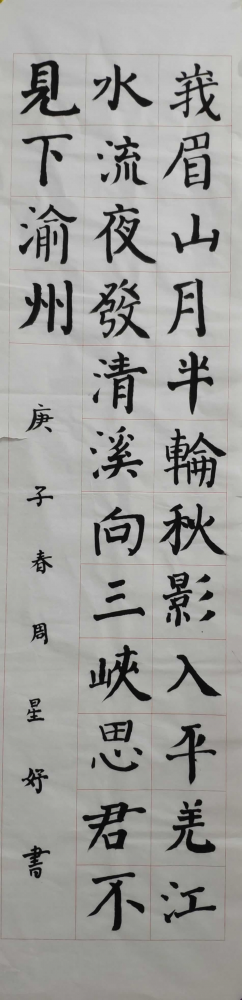 峩眉山月半輪秋影入平羌江
水流夜發清溪向三峽思君不
見下渝州
庚子春周星妤書